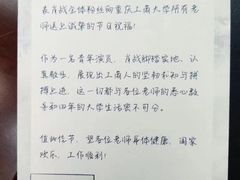 表肖战全体粉丝向重庆工商大学所有老
师送上诚挚的节日祝福！
作为一名青年演员，肖战脚踏实地、认
真敬业，展现出工商人的坚韧不拔与拼
搏上进，这一切都与各位老师的悉心教
导和四年的大学生活密不可分。
值此佳节，望各位老师身体健康，阖家
欢乐，工作顺利！